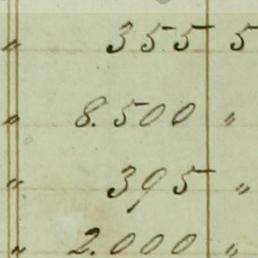 " 355 5
" 8.500 "
" 395 "
" 2.000 "